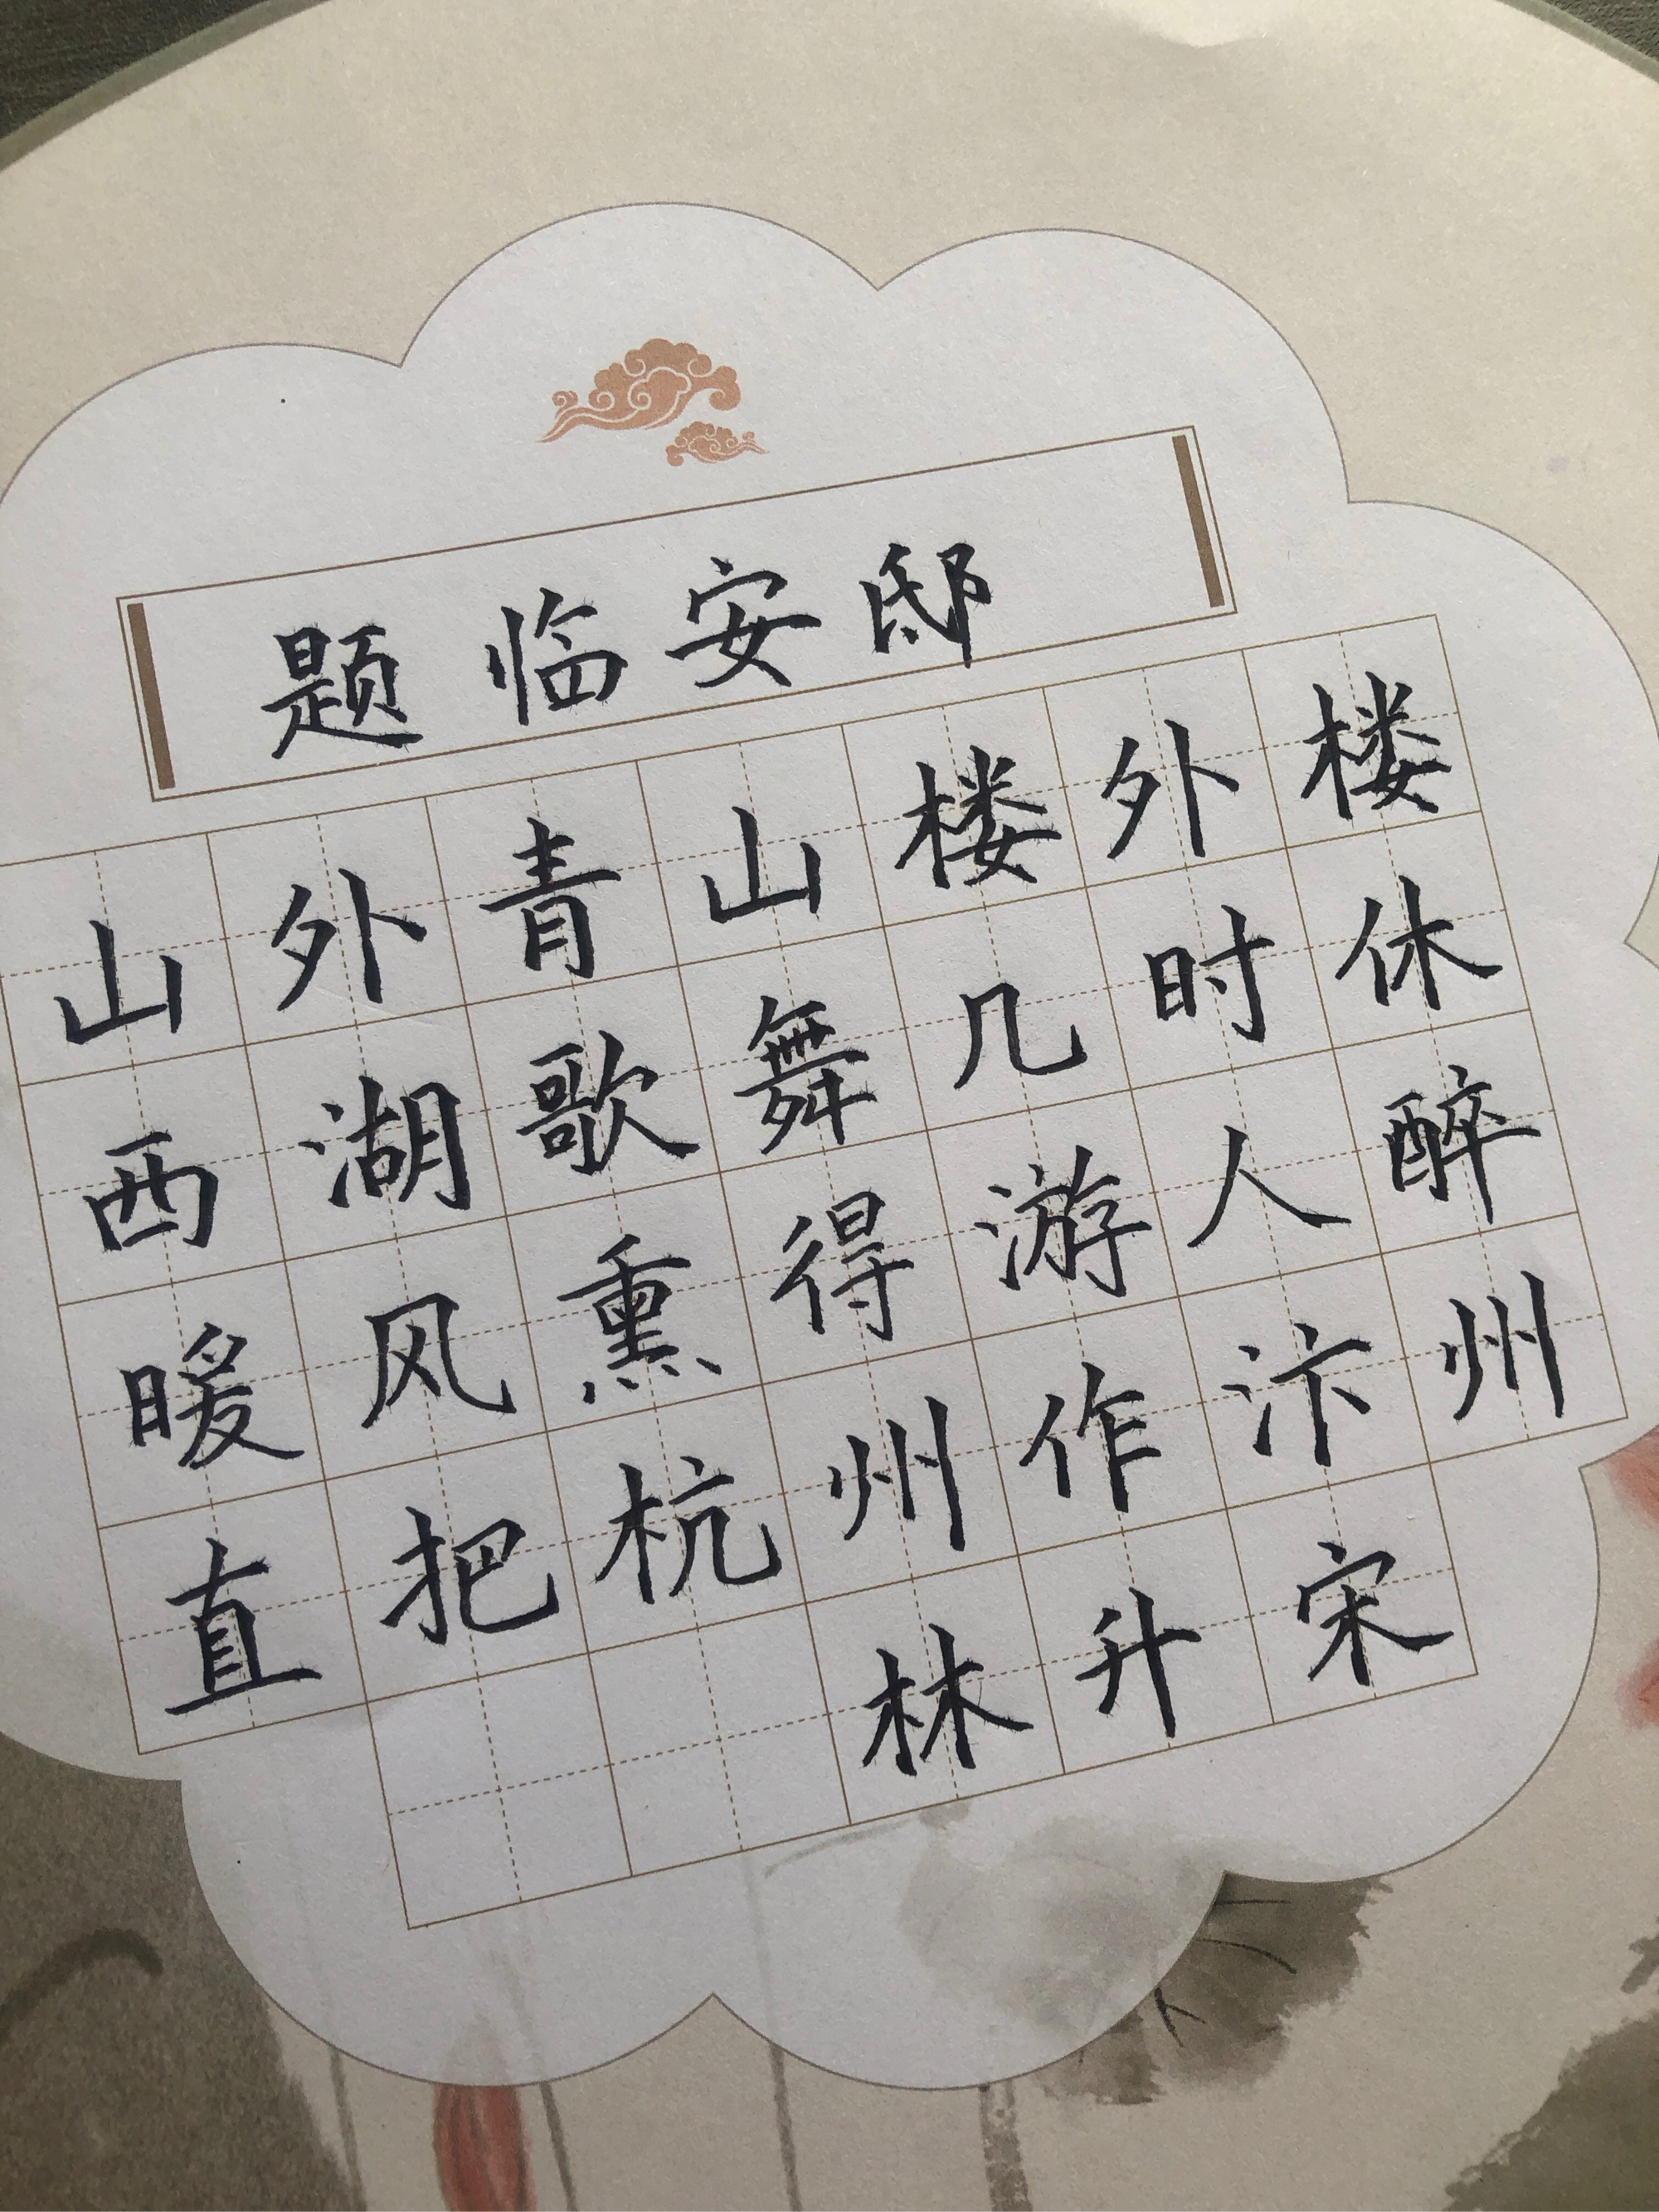 题临安邸
山外青山楼外楼
西湖歌舞几时休
暖风熏得游人醉
直把杭州作汴州
林升宋